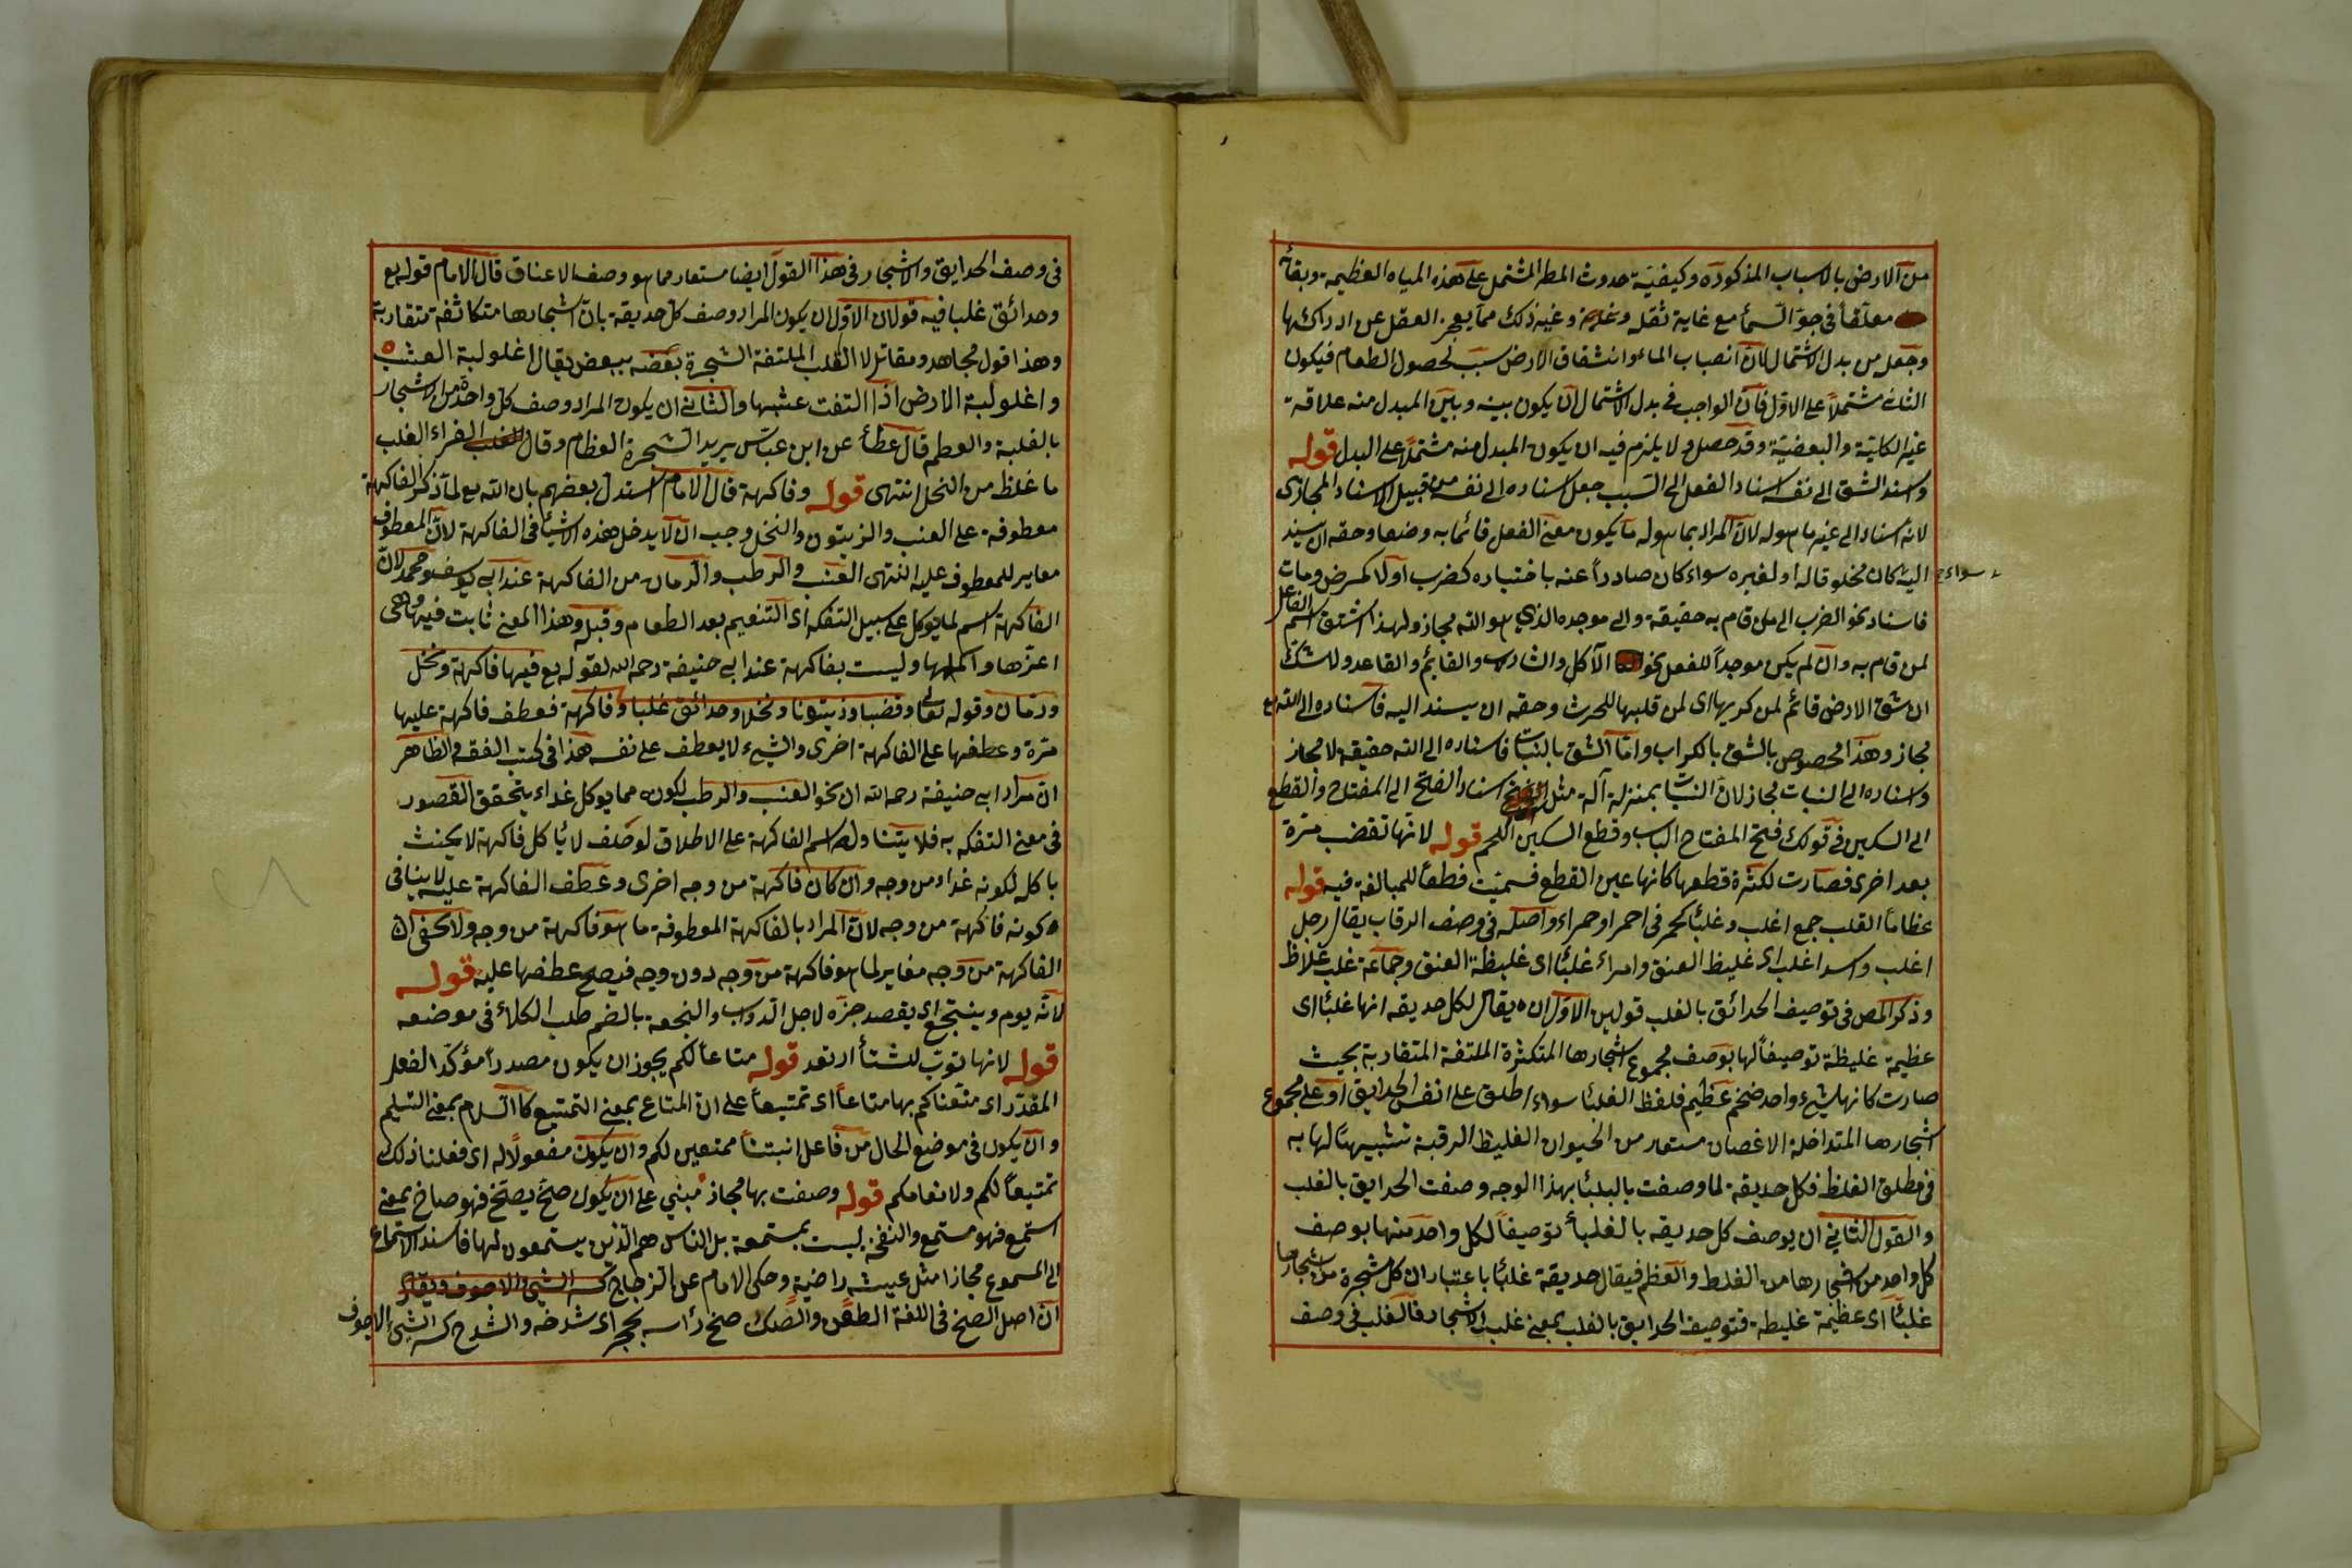 من الارض بالاسباب المذكورة وكيفية حدوث المطر المشتمل على هذه المياه العظيمة وبقائه
معلقا فى جو السمأ مع غاية ثقله وغير ذلك مما يعجز العقل عن ادراكها
وجعل من بدل الاشتمال لان انصباب الماء وانشقاق الارض سبب لحصول الطعام فيكون
الثانى مشتملاً على الاول فان الواجب فى بدل الاشتمال ان يكون بينه وبين المبدل منه علاقة
غير الكلية والبعضية وقد حصل ولا يلزم فيه ان يكون المبدل منه مشتملاً على البدل قوله
واسند الشق الى نفسه اسناد الفعل الى السبب جعل اسناده الى نفسه من قبيل الاسناد المجازى
لانه اسناد الى غير ما هو له لان المراد بما هو له ما يكون معنى الفعل قائما به وصفا وحقه ان يسند
اليه سواء كان مخلوقا له او لغيره سواء كان صادراً عنه باختياره كضرب اولا كمرض ومات
فاسناد نحو الضرب الى من قام به حقيقة والى موجده الذي هو الله مجاز ولهذا اشتق اسم الفاعل
لمن قام به وان لم يكن موجداً للفعل نحو الآكل والشارب والقايم والقاعد ولا شك
ان شق الارض قائم لمن كربها اى لمن قلبها للحرث وحقه ان يسند اليه فاسناده الى الله تع
مجاز وهذا مخصوص بالشق بالكراب واما الشق بالنبات فاسناده الى الله حقيقة لا مجاز
واسناده الى النبات مجاز لان النبات بمنزلة آلة مثل اسناد الفتح الى المفتاح والقطع
الى السكين فى قولك فتح المفتاح الباب وقطع السكين اللحم قوله لانها تقضب مرة
بعد اخرى فصارت لكثرة قطعها كانها عين القطع فسميت قطعاً للمبالغة فيه قوله
عظاماً الغلب جمع اغلب وغلبا كحمر فى احمر او حمراء واصله فى وصف الرقاب يقال رجل
اغلب واسد اغلب اى غليظ العنق وامراء غلبا اى غليظة العنق وجماعة غلب غلاظ
وذكر المص فى توصيف الحدائق بالغلب قولين الاول ان يقال لكل حديقه انها غلبا اى
عظيمة غليظة توصيفاً لها بوصف مجموع اشجارها المتكثرة الملتفة المتقاربة بحيث
صارت كانها شيء واحد ضخم عظيم فلفظ الغلبا سواء اطلق على انفس الحدايق او على مجموع
اشجارها المتداخلة الاغصان مستعار من الحيوان الغليظ الرقبة تشبيها لها به
فى مطلق الغلظ فكل حديقة لما وصفت بالبلبا بهذا الوجه وصفت الحدايق بالغلب
والقول الثاني ان يوصف كل حديقه بالغلبأ توصيفاً لكل واحد منها بوصف
كل واحد من اشجارها من الغلظ والعظم فيقال حديقة غلبا باعتبار ان كل شجرة من اشجارها
غلبا اى عظيمة غليظة فتوصيف الحدايق بالغلب بمعنى غلب الاشجار فالغلب فى وصف
فى وصف الحدايق والاشجار فى هذا القول ايضا مستعار مما هو وصف الاعناق قال الامام قوله تع
وحدائق غلبا فيه قولان الاول ان يكون المراد وصف كل حديقة بان اشجارها متكاثفة متقاربة
وهذا قول مجاهد ومقاتل لا الغلب الملتفة الشجرة بعضه ببعض يقال اغلولبة العشب
واغلولبة الارض اذا التفت عشبها والثانى ان يكون المراد وصف كل واحدة من الاشجار
بالغلبة والعظم قال عطأ عن ابن عباس يريد الشجرة العظام وقال الفراء الغلب
ما غلظ من النخل انتهى قوله وفاكهة قال الامام استدل بعضهم بان الله تع لما ذكر الفاكهة
معطوفة على العنب والزيتون والنخل وجب ان لا يدخل هذه الاشيأ فى الفاكهة لان المعطوف
مغاير للمعطوف عليه انتهى العنب والرطب والرمان من الفاكهة عند ابى يوسف ومحمد لان
الفاكهة اسم لما يوكل على سبيل التفكه اى التنعيم بعد الطعام وقبله وهذا المعنى ثابت فيها وهى
اعزها واكملها وليست بفاكهة عند ابى حنيفة رحمه الله لقوله تع فيها فاكهة ونخل
ورمان وقوله تعالى وقضبا وزيتونا ونخلا وحدائق غلبا وفاكهة فعطف فاكهة عليها
مرة وعطفها على الفاكهة اخرى والشيء لا يعطف على نفسه هكذا فى كتب الفقه والظاهر
ان مراد ابى حنيفة رحمه الله ان نحو العنب والرطب لكونه مما يوكل غداء يتحقق القصور
فى معنى التفكه به فلا يتناوله اسم الفاكهة على الاطلاق لو حلف لا يأكل فاكهة لا يحنث
باكله لكونه غداء من وجه وان كان فاكهة من وجه اخرى وعطف الفاكهة عليه لا ينافى
كونه فاكهة من وجه لان المراد بالفاكهة المعطوفة ما هو فاكهة من وجه ولا يخفى ان
الفاكهة من وجه مغاير لما هو فاكهة من وجه دون وجه فيصح عطفها عليه قوله
لانه يوم وينتجع اى يقصد جزه لاجل الدواب والنجعة بالضم طلب الكلاء فى موضعه
قوله لانها توب للشتأ ار تعد قوله متاعاً لكم يجوز ان يكون مصدراً مؤكد الفعل
المقدر اى متعناكم بها متاعاً اى تمتيعاً على ان المتاع بمعنى التمتيع كالسلام بمعنى التسليم
وان يكون فى موضع الحال من فاعل انبتنا ممتعين لكم وان يكون مفعولاً له اى فعلنا ذلك
تمتيعاً لكم ولانعامكم قوله وصفت بها مجاز مبني على ان يكون صخ يصخ فهو صاخ بمعنى
استمع فهو مستمع والنفخة ليست بمستمعة بل الناس هم الذين يستمعون لها فاسند الاستماع
الى المسموع مجازا مثل عيشه راضية وحكى الامام عن الزجاج
ان اصل الصخ فى اللغة الطعن والصك صخ رأسه بحجر اى شدخه والشدخ كسر الشئ الاجوف